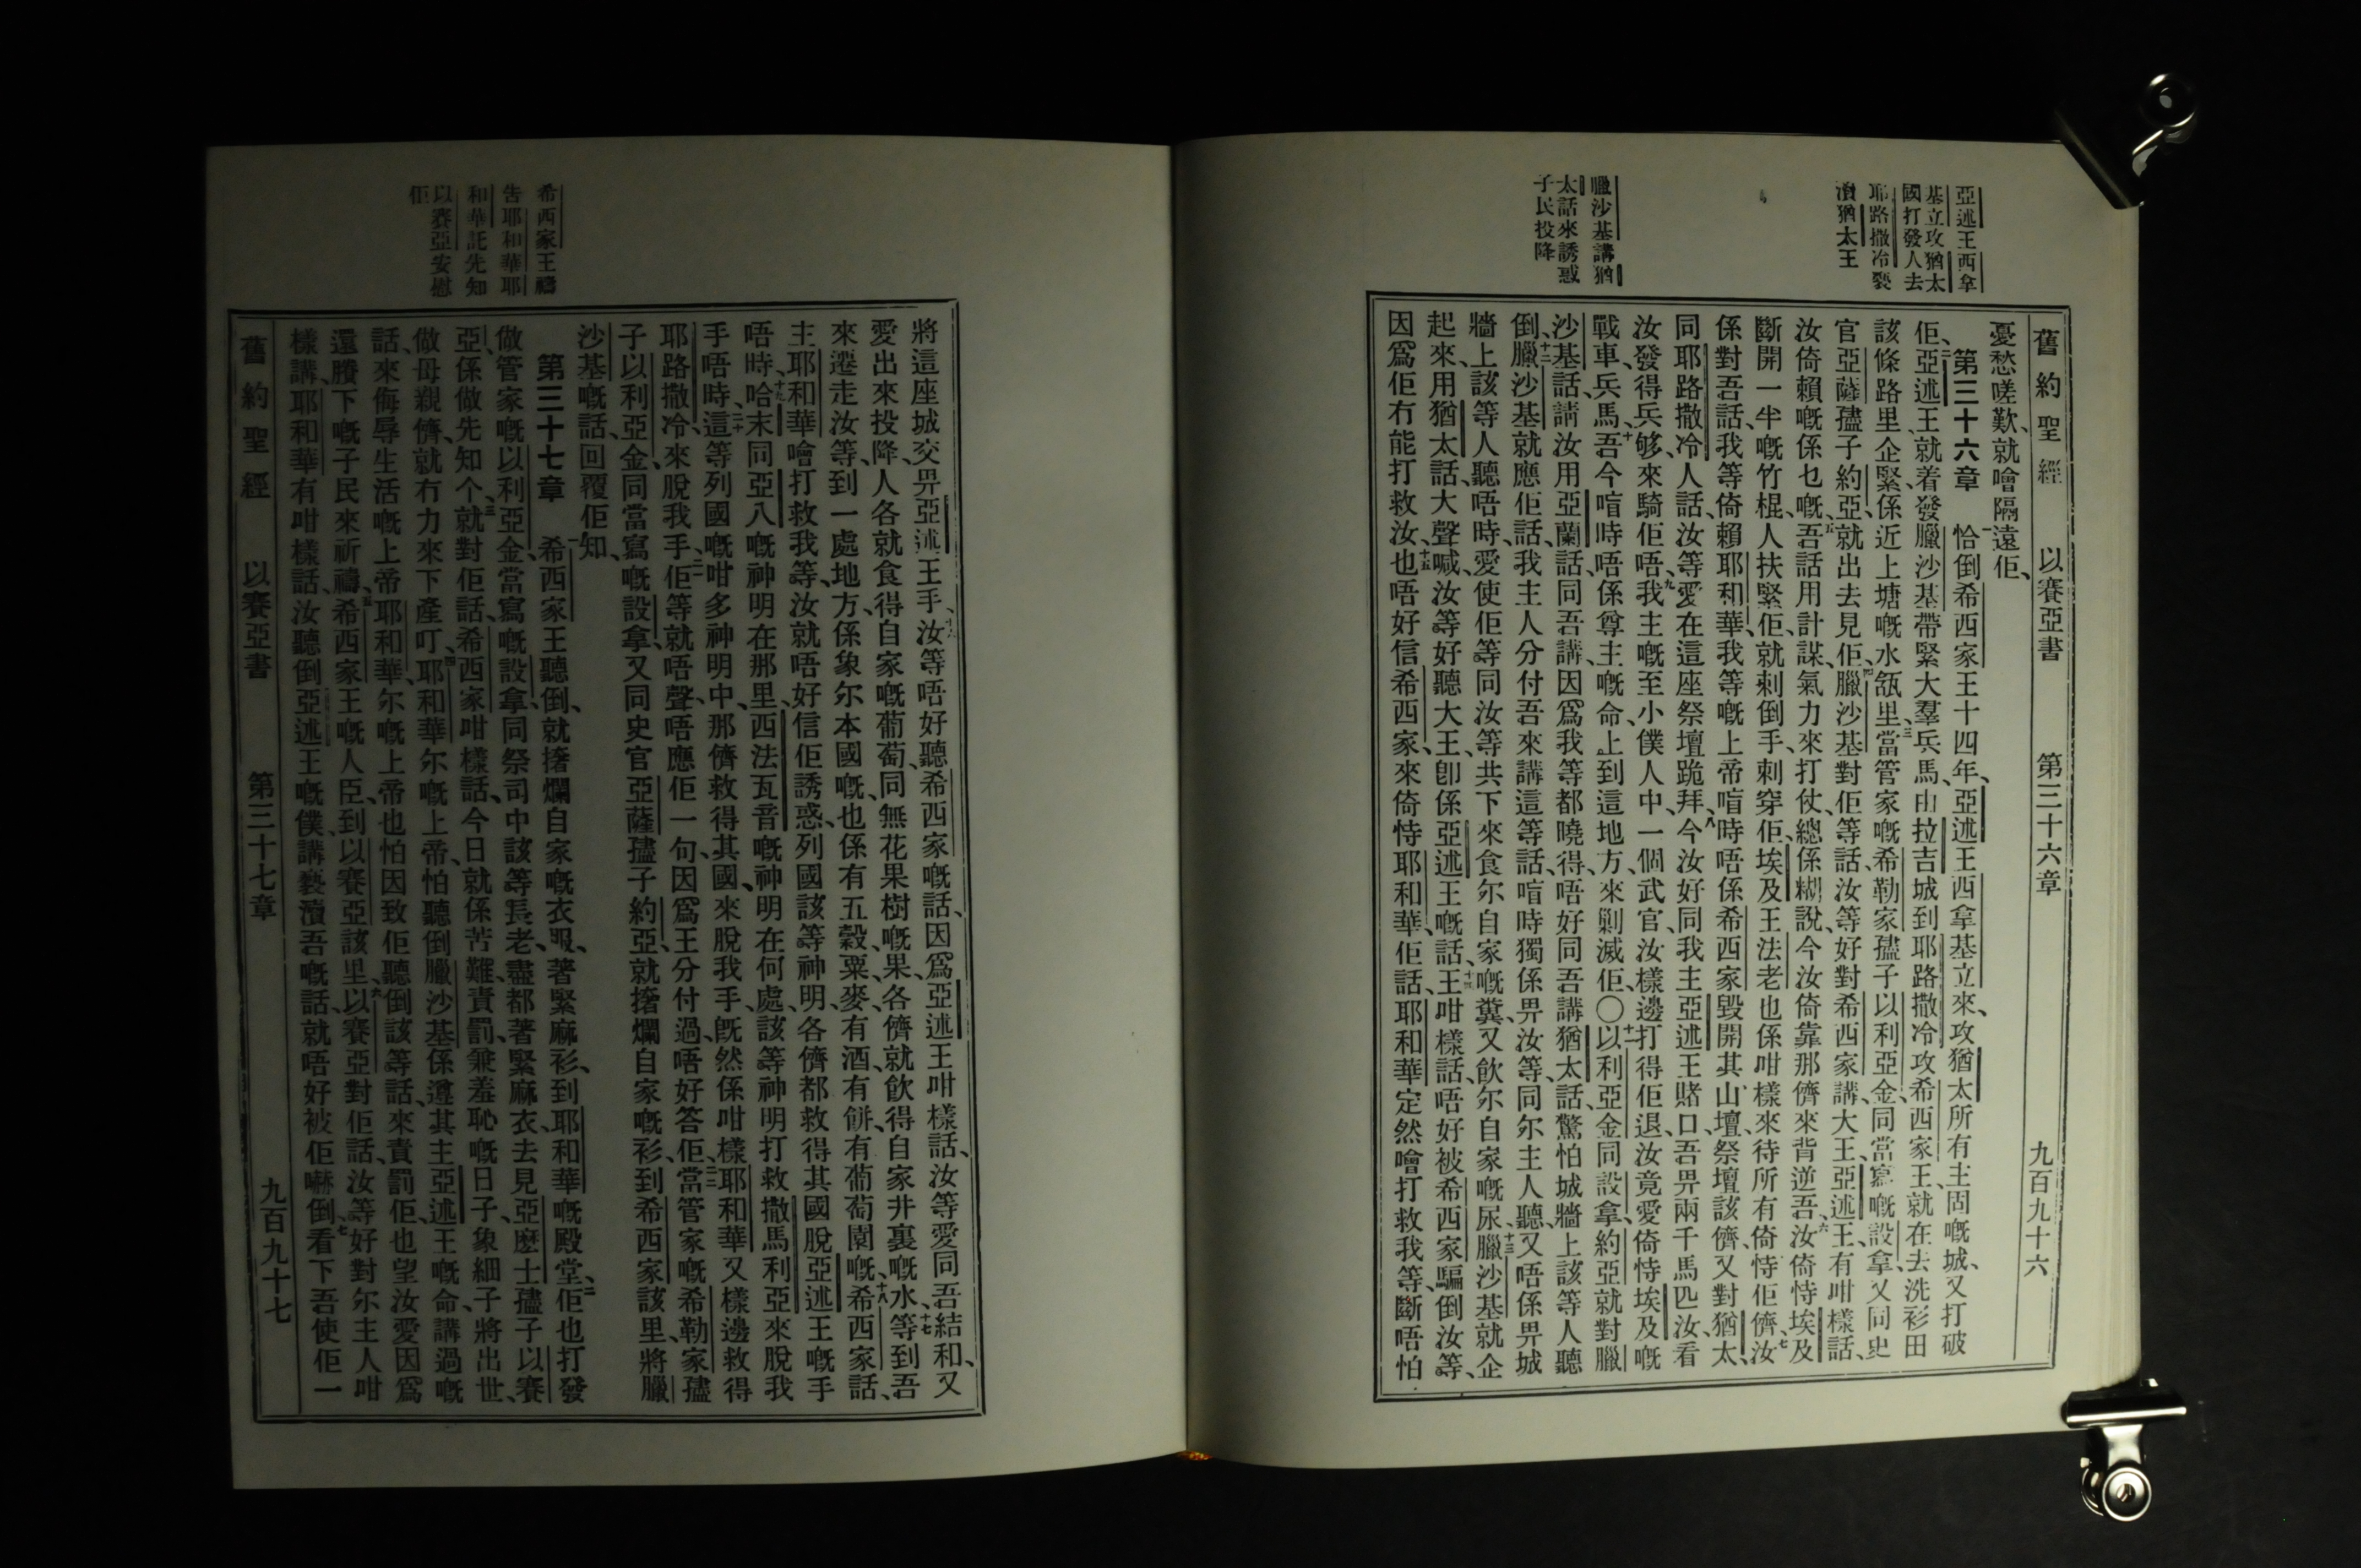 舊約聖經 以賽亞書 第三十六章 九百九十六
亞述王西拿
基立攻猶太
國打發人去
耶路撒冷褻
瀆猶太王
臘沙基講猶
太話來誘惑
子民投降
憂愁嗟歎、就噲隔遠佢、
第三十六章 一恰倒希西家王十四年、亞述王西拿基立來、攻猶太所有主固嘅城、又打破
佢、二亞述王、就着發臘沙基帶緊大羣兵馬、由拉吉城到耶路撒冷攻希西家王、就在去洗衫田
該條路里企緊、係近上塘嘅水缻里、三當管家嘅希勒家孻子以利亞金、同當寫嘅設拿、又同史
官亞薩孻子約亞、就出去見佢、四臘沙基對佢等話、汝等好對希西家講、大王、亞述王、有咁樣話、
汝倚賴嘅係乜嘅、五吾話用計謀、氣力來打仗、總係糊說、今汝倚靠那儕來背逆吾、六汝倚恃埃及
斷開一半嘅竹棍、人扶緊佢、就刺倒手、刺穿佢、埃及王法老也係咁樣來待所有倚恃佢儕、七汝
係對吾話、我等倚賴耶和華、我等嘅上帝、喧時唔係希西家毀開其山壇、祭壇該儕、又對猶太、
同耶路撒冷人話、汝等愛在這座祭壇跪拜、八今汝好同我主亞述王賭口、吾畀兩千馬匹汝、看
汝發得兵够、來騎佢唔、九我主嘅至小僕人中、一個武官、汝樣邊打得佢退、汝竟愛倚恃埃及嘅
戰車、兵馬、十吾今喧時唔係尊主嘅命、上到這地方、來剿滅佢〇十一以利亞金同設拿、約亞就對臘
沙基話、請汝用亞蘭話、同吾講、因爲我等都曉得、唔好同吾講猶太話、驚怕城牆上該等人聽
倒、十二臘沙基就應佢話、我主人分付吾來講這等話、喧時獨係畀汝等、同尔主人聽、又唔係畀城
牆上該等人聽唔時、愛使佢等同汝等共下來食尔自家嘅糞、又飲尔自家嘅尿、十三臘沙基就企
起來、用猶太話、大聲喊、汝等好聽大王、卽係亞述王嘅話、十四王咁樣話、唔好被希西家騙倒汝等、
因爲佢冇能打救汝、十五也唔好信希西家、來倚恃耶和華、佢話、耶和華定然噲打救我等、斷唔怕
將這座城交畀亞述王手、十六汝等唔好聽希西家嘅話、因爲亞述王咁樣話、汝等愛同吾結和、又
愛出來投降、人各就食得自家嘅葡萄、同無花果樹嘅果、各儕就飲得自家井裏嘅水、十七等到吾
來遷走汝等、到一處地方、係象尔本國嘅、也係有五穀、粟、麥、有酒、有餅、有葡萄園嘅、十八希西家話、
主耶和華噲打救我等、汝就唔好信佢誘惑、列國該等神明、各儕都救得其國脫亞述王嘅手
唔時、十九哈末同亞八嘅神明在那里、西法瓦音嘅神明在何處、該等神明打救撒馬利亞來脫我
手唔時、二十這等列國嘅咁多神明中、那儕救得其國、來脫我手、旣然係咁樣、耶和華又樣邊救得
耶路撒冷、來脫我手、二一佢等就唔聲、唔應佢一句、因爲王分付過、唔好答佢、二二當管家嘅希勒家孻
子以利亞金、同當寫嘅設拿、又同史官亞薩孻子約亞、就撦爛自家嘅衫、到希西家該里、將臘
沙基嘅話、回覆佢知、
第三十七章 一希西家王聽倒、就撦爛自家嘅衣服、著緊麻衫、到耶和華嘅殿堂、二佢也打發
做管家嘅以利亞金、當寫嘅設拿、同祭司中該等長老、盡都著緊麻衣、去見亞麽士孻子以賽
亞、係做先知个、三就對佢話、希西家咁樣話、今日就係苦難、責罰、兼羞恥嘅日子、象細子將出世、
做母親儕、就冇力來下產叮、四耶和華尔嘅上帝、怕聽倒臘沙基、係遵其主亞述王嘅命、講過嘅
話、來侮辱生活嘅上帝、耶和華、尔嘅上帝也怕因致佢聽倒該等話、來責罰佢、也望汝愛因爲
還賸下嘅子民來祈禱、五希西家王嘅人臣、到以賽亞該里、六以賽亞對佢話、汝等好對尔主人咁
樣講、耶和華有咁樣話、汝聽倒亞述王嘅僕、講褻瀆吾嘅話、就唔好被佢嚇倒、七看下吾使佢一
希西家王禱
告耶和華耶
和華託先知
以賽亞安慰
佢
舊約聖經 以賽亞書 第三十七章 九百九十七